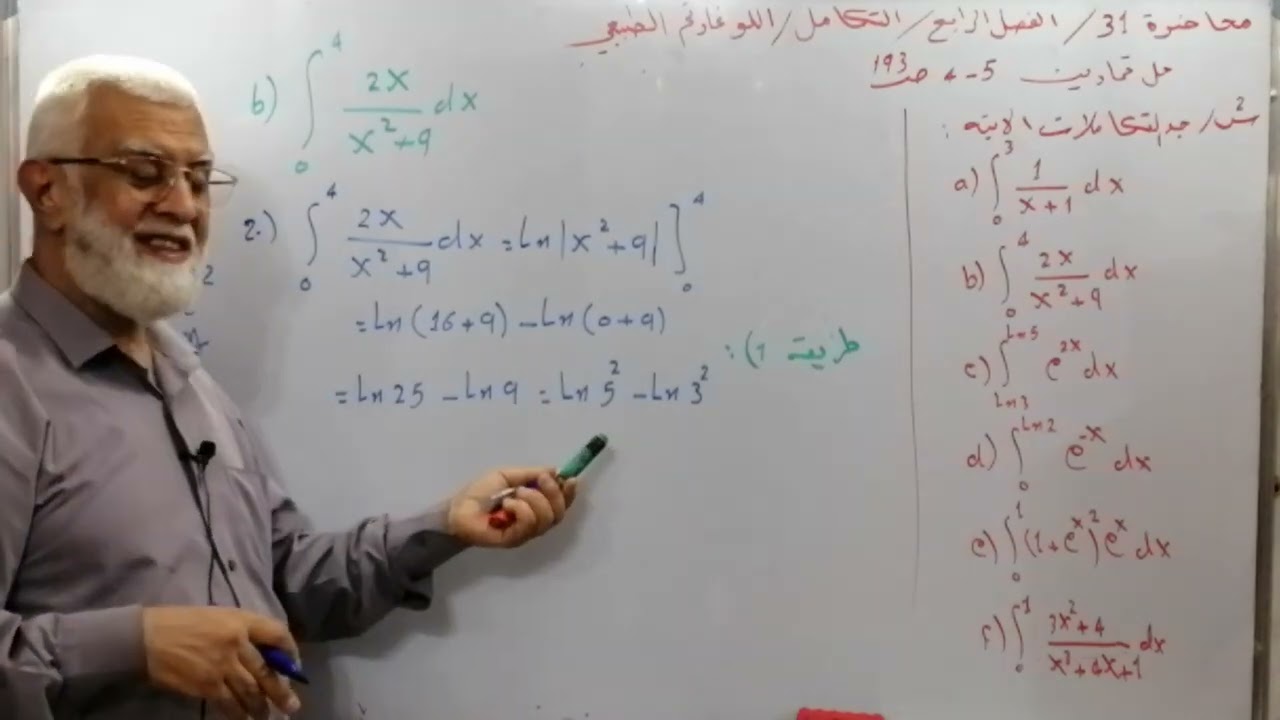 محاضرة 31 / الفصل الرابع / التكامل / اللوغارتم الطبيعي
حل تمارين 5-4 صـ 193
س2/ جد التكاملات الاتية :
a) ∫₀³ 1/(x+1) dx
b) ∫₀⁴ 2x/(x²+9) dx
c) ∫_{Ln3}^{Ln5} e^{2x} dx
d) ∫₀^{Ln2} e^{-x} dx
e) ∫₀¹ (1+e^x)² e^x dx
f) ∫₀¹ (3x²+4)/(x³+4x+1) dx
b) ∫₀⁴ 2x/(x²+9) dx
2.) ∫₀⁴ 2x/(x²+9) dx = Ln|x²+9| ]₀⁴
= Ln(16+9) - Ln(0+9)
طريقة 1) :
= Ln25 - Ln9 = Ln5² - Ln3²
2